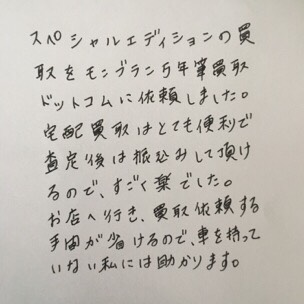 スペシャルエディションの買
取をモンブラン万年筆買取
ドットコムに依頼しました。
宅配買取はとても便利で
査定後は振込みして頂け
るので、すごく楽でした。
お店へ行き、買取依頼する
手間が省けるので、車を持って
いない私には助かります。